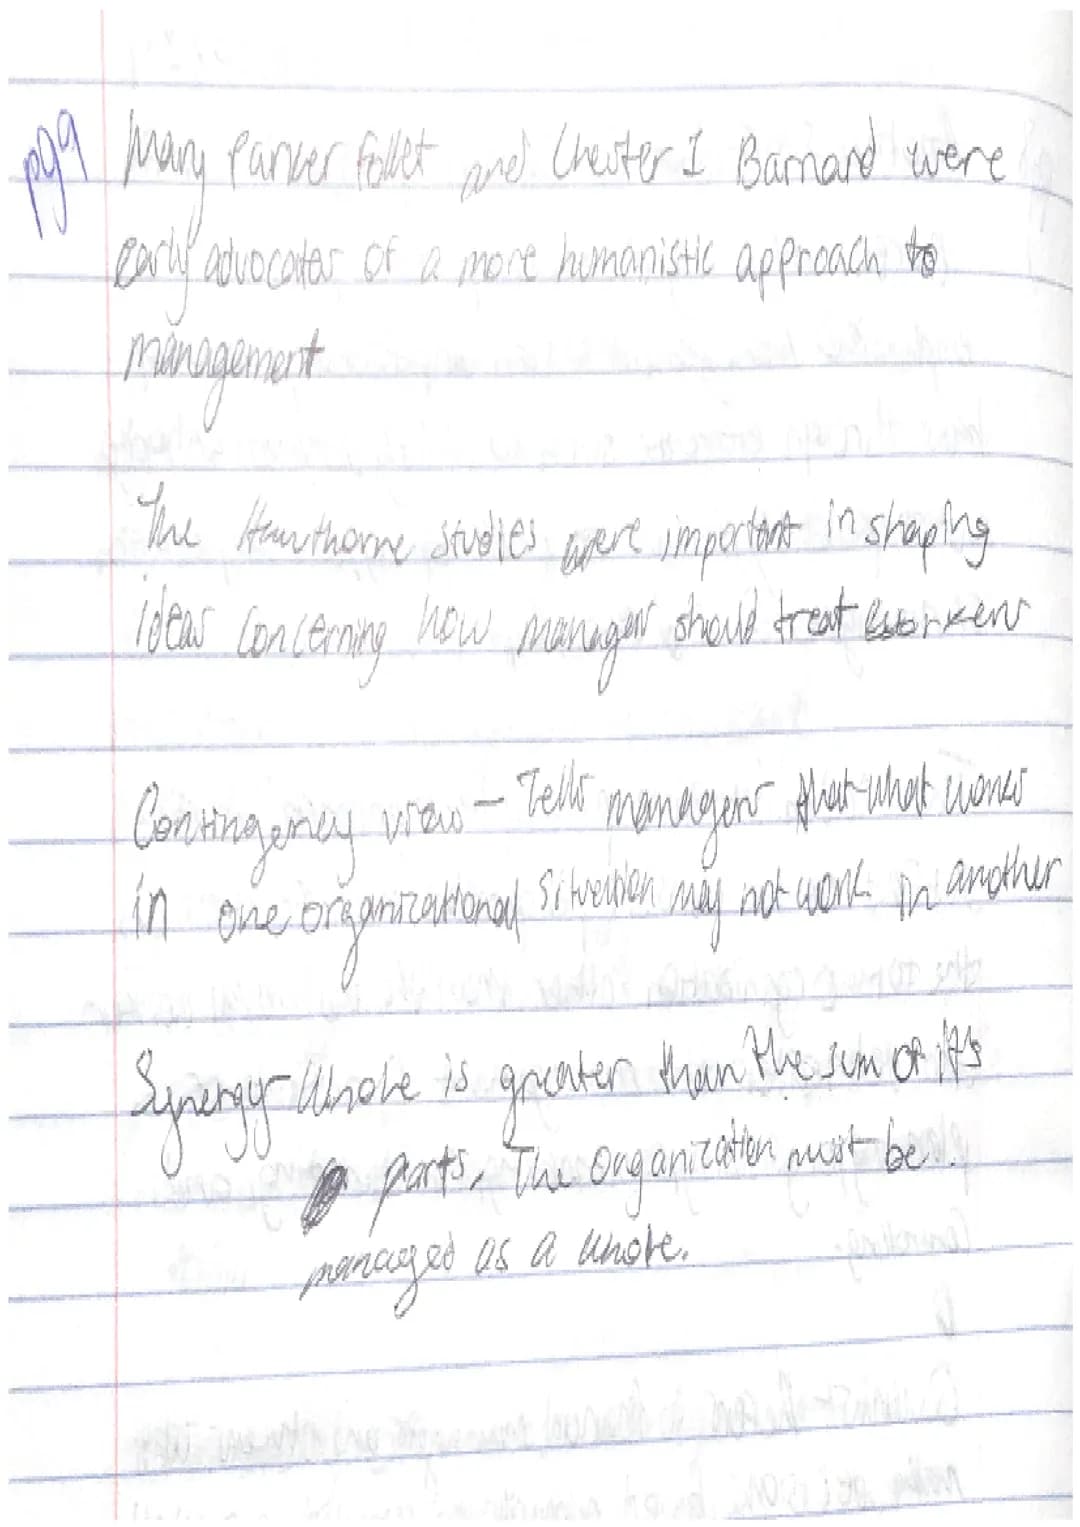 pg9
Mary Parker follet and Chester I Barnard were
early advocates of a more humanistic approach to
management
The Hawthorne studies were important in shaping
ideas concerning how managers should treat workers
Contingency view - Tells managers that what works
in one organizational situation may not work in another
Synergy - Whole is greater than the sum of it's
parts, The organization must be
managed as a whole.